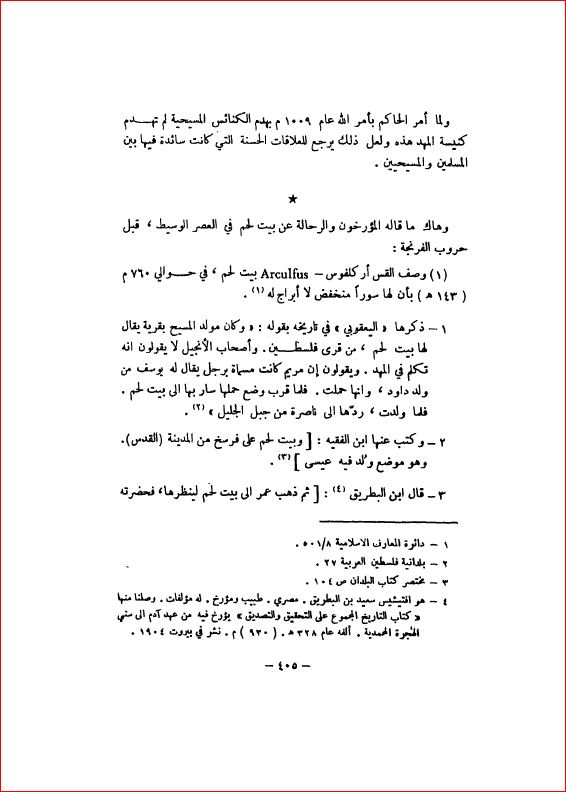 ولما أمر الحاكم بأمر الله عام ١٠٠٩ م بهدم الكنائس المسيحية لم تهـــدم
كنيسة المهد هذه ولعل ذلك يرجع للعلاقات الحسنة التي كانت سائدة فيها بين
المسلمين والمسيحيين .
★
وهاك ما قاله المؤرخون والرحالة عن بيت لحم في العصر الوسيط ، قبل
حروب الفرنجة :
(١) وصف القس أركلفوس – Arculfus بيت لحم ، في حـــوالي ٧٦٠ م
( ١٤٣ هـ ) بأن لها سوراً منخفض لا أبراج له (١) .
١ – ذكرها « اليعقوبي » في تاريخه بقوله : « وكان مولد المسيح بقرية يقال
لها بيت لحم ، من قرى فلسطـــين . وأصحاب الأنجيل لا يقولون انه
تكلم في المهد . ويقولون إن مريم كانت مسماة برجل يقال له يوسف من
ولد داود ، وانها حملت . فلما قرب وضع حملها سار بها الى بيت لحم .
فلما ولدت ، ردّها الى ناصرة من جبل الجليل » (٢) .
٢ – وكتب عنها ابن الفقيه : [ وبيت لحم على فرسخ من المدينة (القدس).
وهو موضع وُلد فيه عيسى ] (٣) .
٣ – قال ابن البطريق (٤) : [ ثم ذهب عمر الى بيت لحم لينظرها، فحضرته
١ – دائرة المعارف الاسلامية ٥٠١/٨ .
٢ – بلدانية فلسطين العربية ٢٧ .
٣ – مختصر كتاب البلدان ص ١٠٤ .
٤ – هو افتيشيس سعيد بن البطريق . مصري . طبيب ومؤرخ . له مؤلفات . وصلنا منها
« كتاب التاريخ المجموع على التحقيق والتصديق » يؤرخ فيه من عهد آدم الى سني
الهجرة المحمدية . ألفه عام ٣٢٨ هـ . ( ٩٣٠ ) م . نشر في بيروت ١٩٠٤ .
– ٤٠٥ –